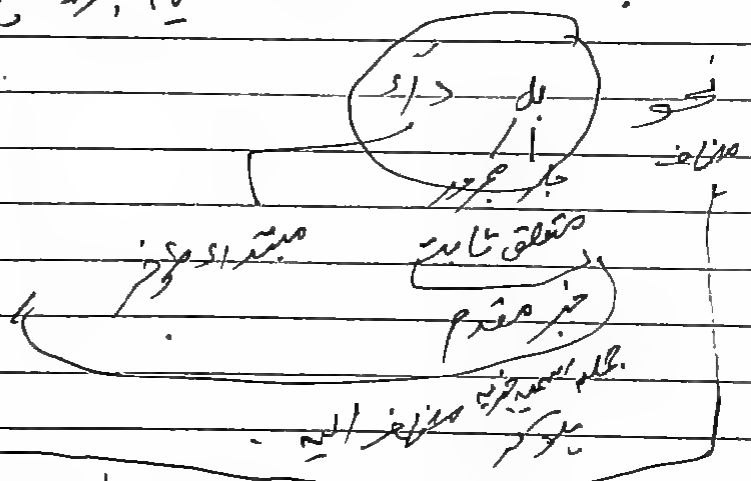 نحو به داء
مضاف
جار مجرور
متعلق ثابت مبتداء مؤخر
خبر مقدم
جملہ اسمیہ خبریہ
ہوکر مضاف الیہ